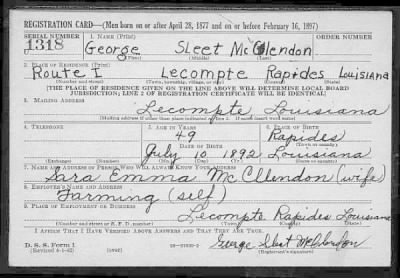 REGISTRATION CARD—(Men born on or after April 28, 1877 and on or before February 16, 1897)
SERIAL NUMBER 1. NAME (Print)
1318 George Sleet McClendon
(First) (Middle) (Last)
2. PLACE OF RESIDENCE (Print)
Route I Lecompte Rapides Louisiana
(Number and street) (Town, township, village, or city) (County) (State)
[THE PLACE OF RESIDENCE GIVEN ON THE LINE ABOVE WILL DETERMINE LOCAL BOARD
JURISDICTION; LINE 2 OF REGISTRATION CERTIFICATE WILL BE IDENTICAL]
3. MAILING ADDRESS
Lecompte Louisiana
[Mailing address if other than place indicated on line 2. If same insert word same]
4. TELEPHONE 5. AGE IN YEARS 6. PLACE OF BIRTH
49 Rapides
DATE OF BIRTH (Town or county)
July 10 1892 Louisiana
(Exchange) (Number) (Mo.) (Day) (Yr.) (State or country)
7. NAME AND ADDRESS OF PERSON WHO WILL ALWAYS KNOW YOUR ADDRESS
Sara Emma McClendon (wife)
8. EMPLOYER'S NAME AND ADDRESS
Farming (self)
9. PLACE OF EMPLOYMENT OR BUSINESS
Lecompte Rapides Louisiana
(Number and street or R. F. D. number) (Town) (County) (State)
I AFFIRM THAT I HAVE VERIFIED ABOVE ANSWERS AND THAT THEY ARE TRUE.
D. S. S. Form 1
(Revised 4-1-42) (over) George Sleet McClendon
(Registrant's signature)